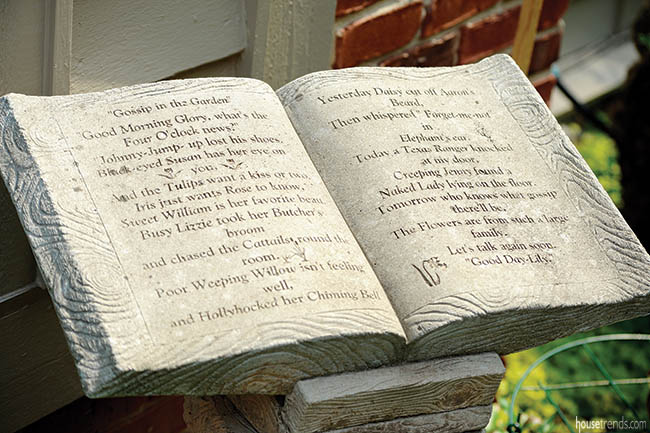 "Gossip in the Garden"
Good Morning Glory, what's the
Four O'clock news?"
Johnny-Jump- up lost his shoes,
Black-eyed Susan has her eye on
you,
And the Tulips want a kiss or two
Iris just wants Rose to know,
Sweet William is her favorite beau
Busy Lizzie took her Butcher's
broom
and chased the Cattails round the
room.
Poor Weeping Willow isn't feeling
well,
and Hollyhocked her Chiming Bell
Yesterday Daisy cut off Aaron's
Beard,
Then whispered" Forget-me-not
in
Elephant's ear.
Today a Texas Ranger knocked
at my door,
Creeping Jenny found a
Naked Lady lying on the floor.
Tomorrow who knows what gossip
there'll be.
The Flowers are from such a large
family,
Let's talk again soon.
"Good Day-Lily."
housetrends.com